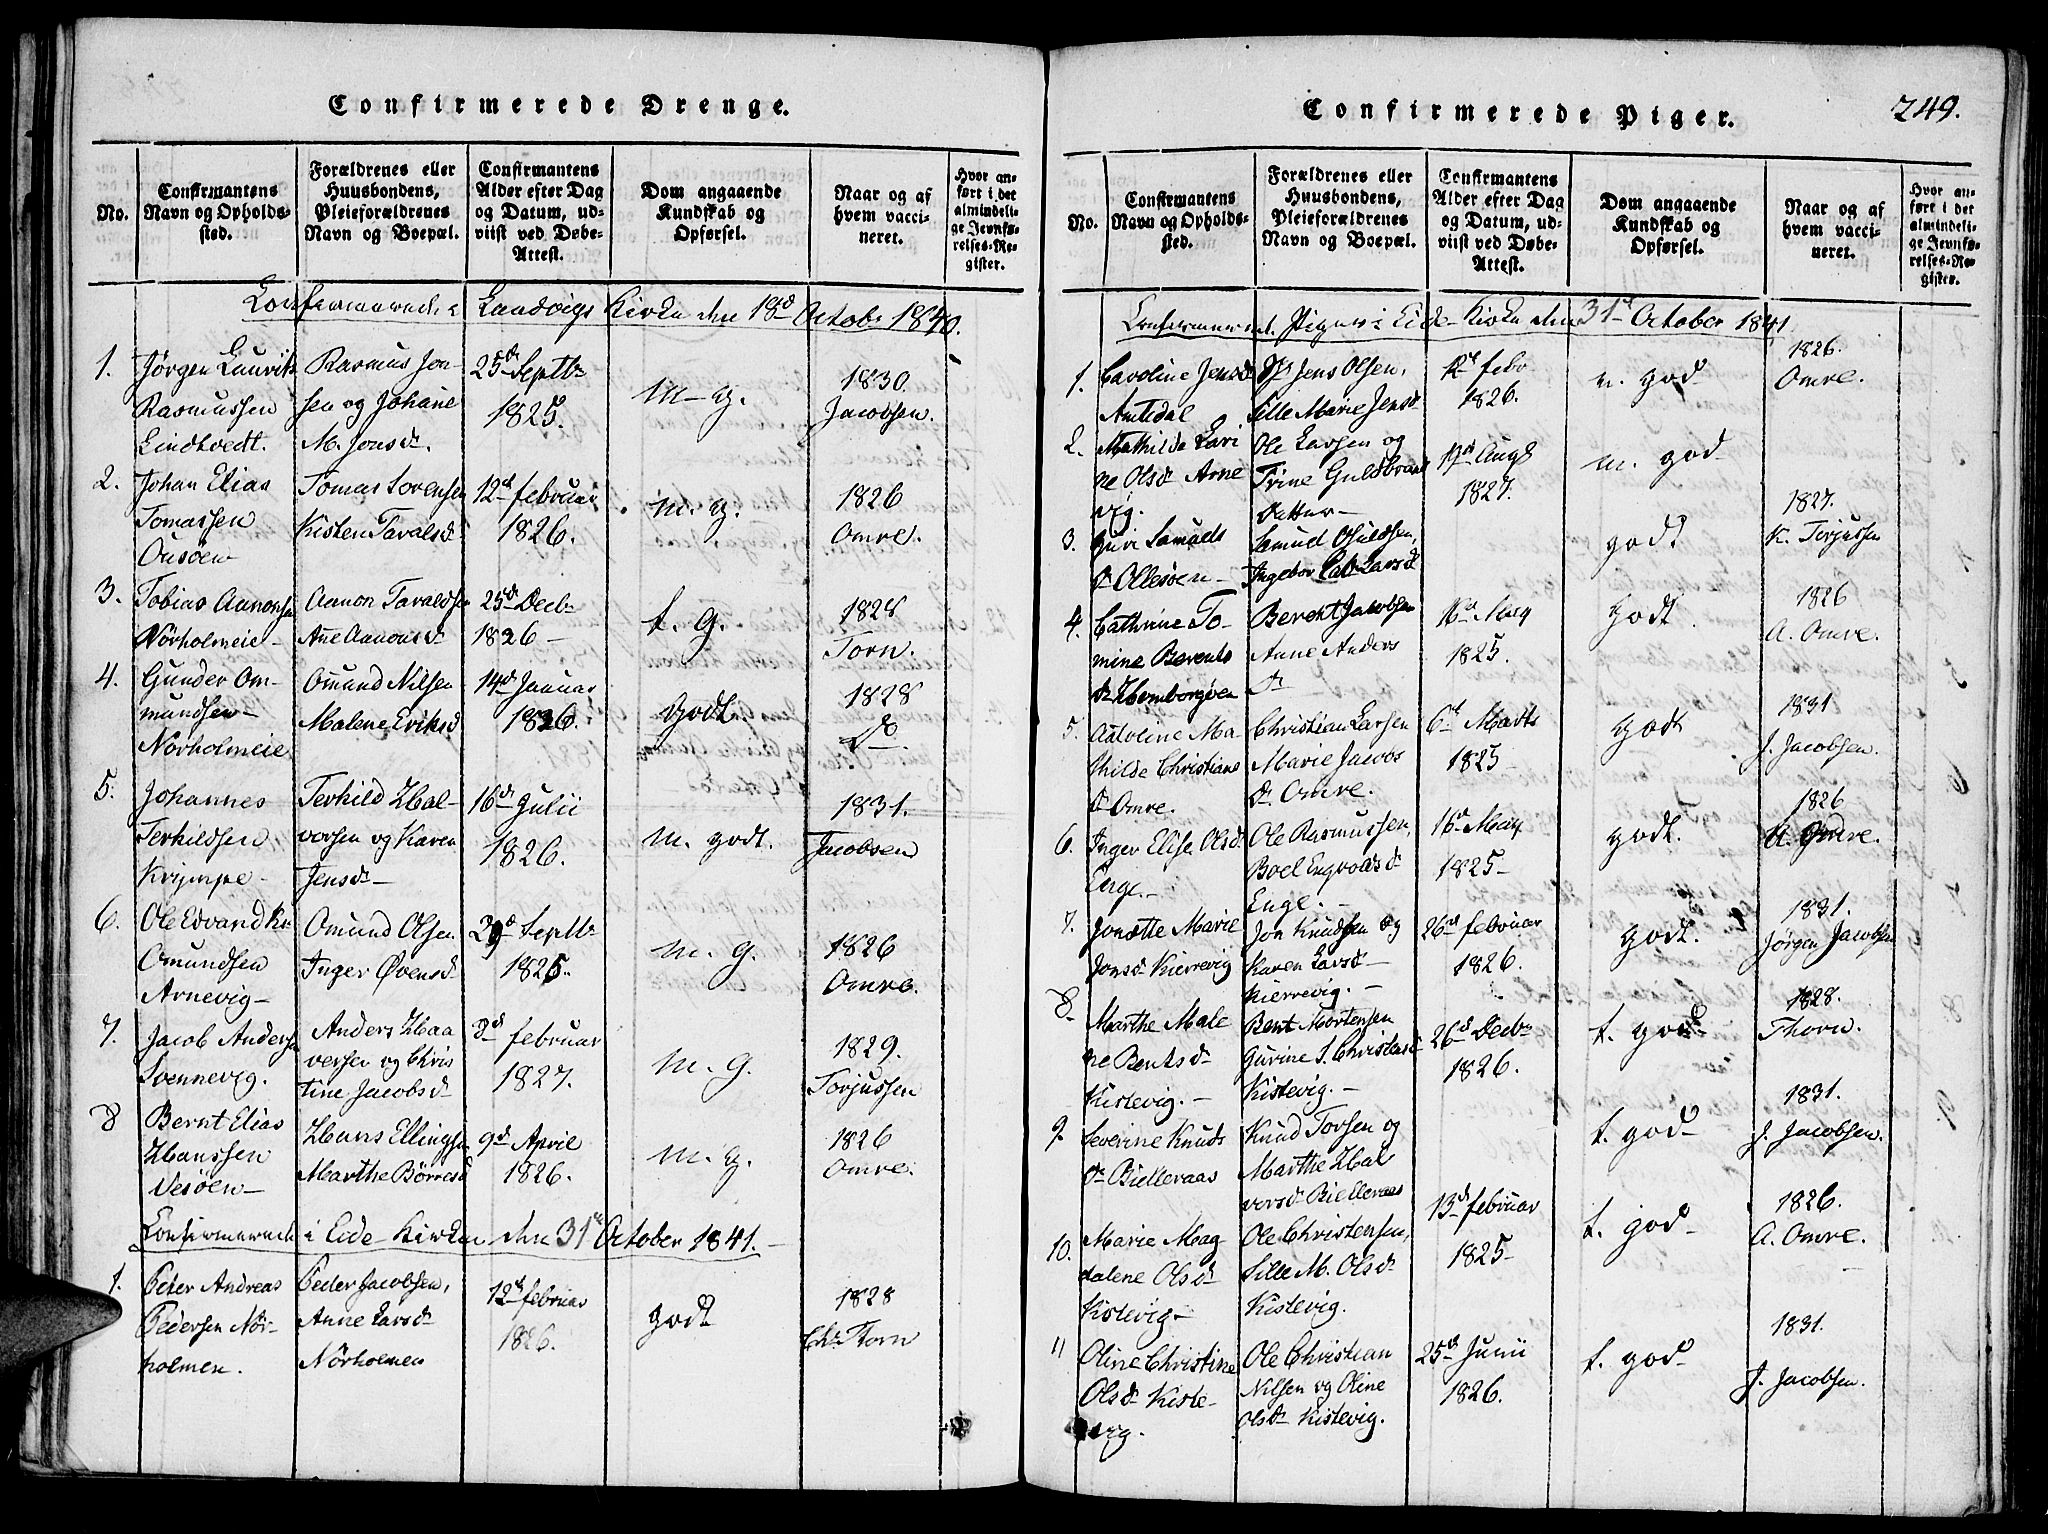 Confirmerede Drenge.
No.
Confirmantens
Navn og Opholds-
sted.
Forældrenes eller
Huusbondens,
Pleieforældrenes
Navn og Boepæl.
Confirmantens
Alder efter Dag
og Datum, ud-
viist ved Døbe-
Attest.
Dom angaaende
Kundskab og
Opførsel.
Naar og af
hvem vacci-
neret.
Hvor an-
ført i det
almindeli-
ge Jevnfø-
relses-Re-
gister.
Landvigs Kirke den 18d Octobr 1840.
1.
Jørgen Laurits
Rasmussen
Lindtvedt.
Rasmus Jon-
sen og Johane
M. Jonsd.
25d Septbr
1825.
m-g.
1830.
Jacobsen.
2.
Johan Elias
Tomassen
Ousöen
Tomas Sorensen
Kisten Tavalsd
12d februar
1826.
m. g.
1826
Omre.
3.
Tobias Aanonsen
Nörholmeie-
Aanon Tavaldsen
Ane Aanonsd
25d Decbr
1826-
t. g.
1828
Torn.
4.
Gunder Om-
mundsen-
Nörholmeie
Omund Nilsen
Malene Eriksd
14d Januar
1826.
godt.
1828
do.
5.
Johannes
Terkildsen
Krijmpe-
Terkild Hal-
vorsen og Karen
Jensd-
16d Julii
1826.
m. godt.
1831.
Jacobsen
6.
Ole Edvard
Omundsen
Arnevig-
Omund Olsen
Inger Øvensd
29d Septbr
1825.
m. g.
1826
Omre.
7.
Jacob Andersen
Svennevig.
Anders Haa
versen og Chris
tine Jacobsd
3d februar
1827.
m. g.
1829.
Torjussen
8
Bernt Elias
Hanssen
Vesöen-
Hans Ellingsen
Marthe Börresd
9d April
1826.
m. g.
1826
Omre.
i Eide Kirke den 31te October 1841.-
1.
Peter Andreas
Pedersen Nör-
holmen.
Peder Jacobsen,
Anne Larsd
Nörholmen
12d februar
1826.
godt
1828
Chr Torn
Confirmerede Piger.
249.
No.
Confirmantens
Navn og Opholds-
sted.
Forældrenes eller
Huusbondens,
Pleieforældrenes
Navn og Boepæl.
Confirmantens
Alder efter Dag
og Datum, ud-
viist ved Døbe-
Attest.
Dom angaaende
Kundskab og
Opførsel.
Naar og af
hvem vacci-
neret.
Hvor an-
ført i det
almindeli-
ge Jevnfø-
relses-Re-
gister.
Piger i Eide-Kirke den 31d October 1841
1.
Caroline Jensd
Amtedal
Jens Olsen,
Sille Marie Jensd
12d febr
1826.
m. god
1826.
Omre.
2.
Mathilde Lavi
ne Olsd Arne
vig.
Ole Larsen og
Trine Guldbrand
Datter-
19d Aug
1827.
m. god
3.
Guri Samuels
d Ollesöen-
Samuel Osuldsen,
Ingebor Larsd
godt
1827.
K. Torjussen
4.
Cathrine To-
mine Berents
d Homborgöen
Berent Jacobsen
Anne Anders
d
16d May
1825.
Godt.
1826
A. Omre.
5.
Antoline Ma-
thilde Christians
d Omre.
Christian Larsen
Marie Jacobs
d. Omre.
6d Marts
1825-
godt
1831
J. Jacobsen.
6.
Inger Elise Olsd
Enge.-
Ole Rasmussen,
Boel Engvolsd
Enge.-
16d May
1825-
godt.
1826
A. Omre.
7.
Jonætte Marie
Jonsd Kierrevig
Jon Knudsen og
Karen Larsd-
Kierrevig.-
26d februar
1826.
godt.
1831.
Jørgen Jacobsen
8.
Marthe Male
ne Bentsd
Kistevig.-
Bent Mortensen
Gurine S. Christensd
Kistevig.-
26d Decbr
1826.
t. god
1828.
Thorn.
9.
Severine Knuds
d Bielleraas
Knud Torsen og
Marthe Hal
vorsd Bielleraas
t. god-
1831.
J. Jacobsen.
10.
Marie Mag
dalene Olsd
Kistevig-
Ole Christensen,
Sille M. Olsd
Kistevig.
13d februar
1825-
t. god-
1826.
A. Omre.
11
Oline Christine
Olsd Kiste-
vig.
Ole Christian
Nilsen og Oline
Olsd Kistevig.
25d Junii
1826.
t. god-
1831.
J. Jacobsen.